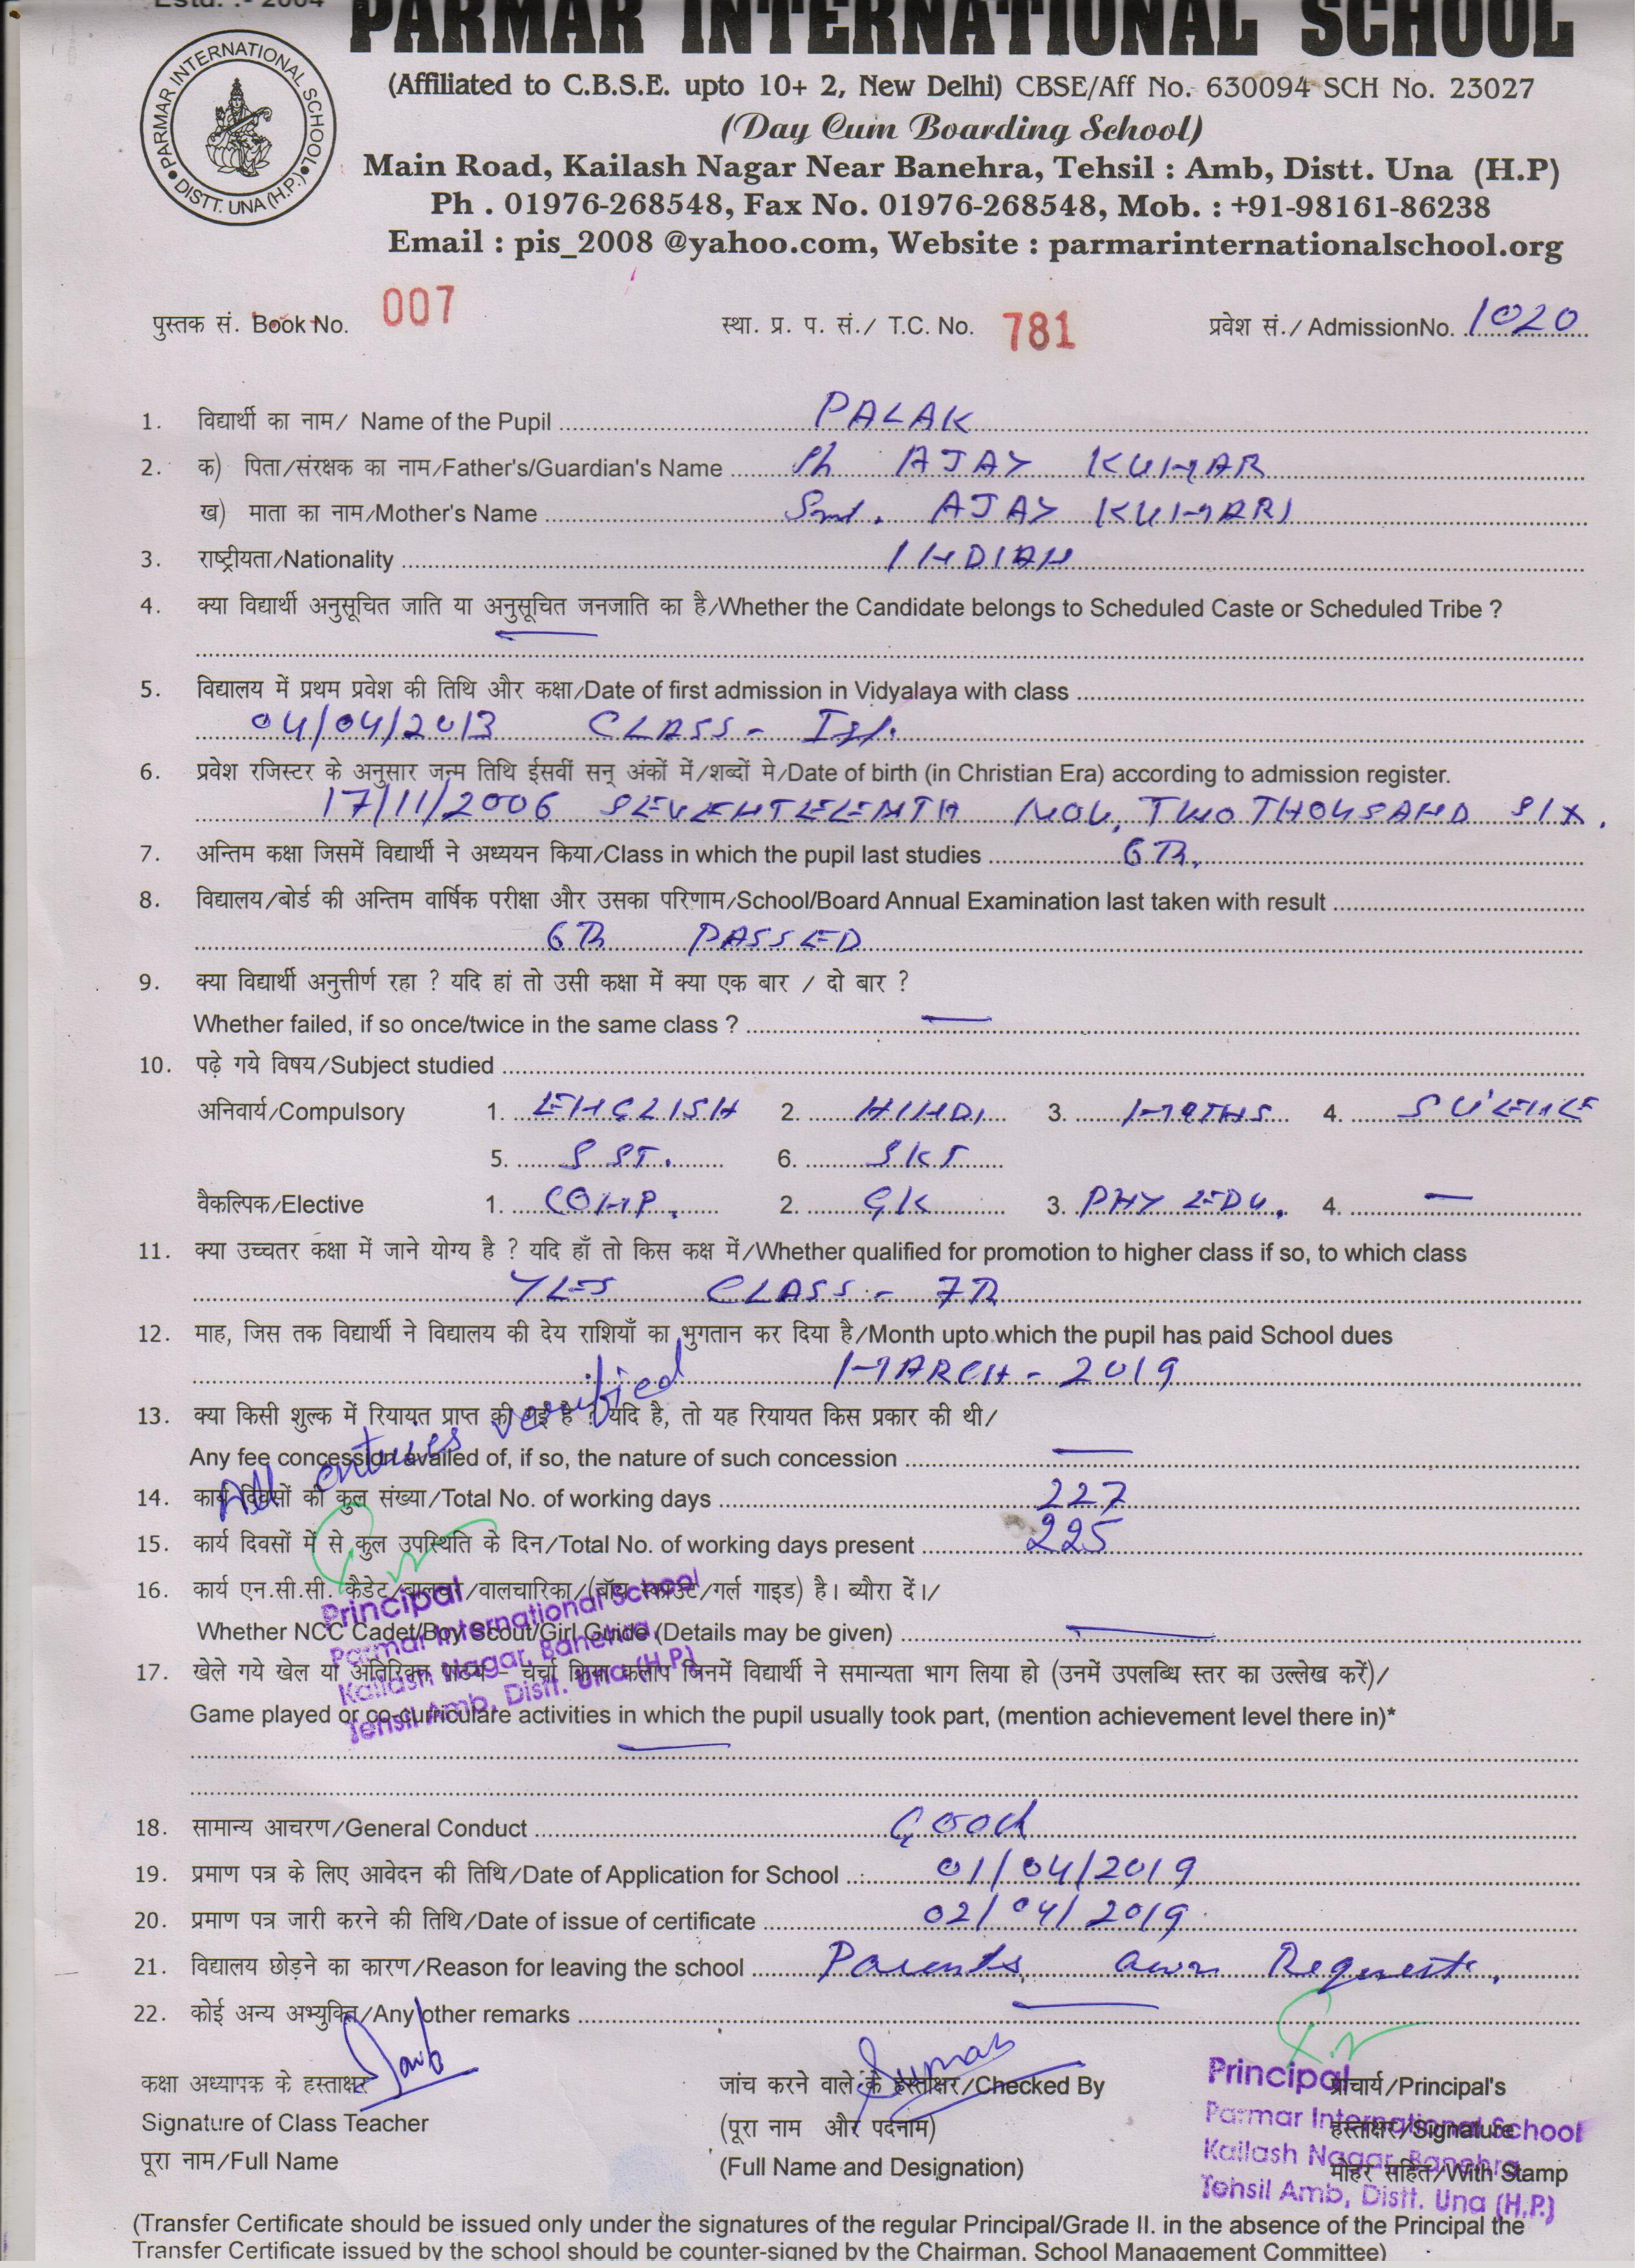 Estd. :- 2004
PARMAR INTERNATIONAL SCHOOL
PARMAR INTERNATIONAL SCHOOL
DISTT. UNA (H.P.)
(Affiliated to C.B.S.E. upto 10+ 2, New Delhi) CBSE/Aff No. 630094 SCH No. 23027
(Day Cum Boarding School)
Main Road, Kailash Nagar Near Banehra, Tehsil : Amb, Distt. Una (H.P)
Ph . 01976-268548, Fax No. 01976-268548, Mob. : +91-98161-86238
Email : pis_2008 @yahoo.com, Website : parmarinternationalschool.org
पुस्तक सं. Book No. 007 स्था. प्र. प. सं./ T.C. No. 781 प्रवेश सं./ AdmissionNo. 1020
1. विद्यार्थी का नाम/ Name of the Pupil PALAK
2. क) पिता/संरक्षक का नाम/Father's/Guardian's Name Sh AJAY KUMAR
ख) माता का नाम/Mother's Name Smt. AJAY KUMARI
3. राष्ट्रीयता/Nationality INDIAN
4. क्या विद्यार्थी अनुसूचित जाति या अनुसूचित जनजाति का है/Whether the Candidate belongs to Scheduled Caste or Scheduled Tribe ?
5. विद्यालय में प्रथम प्रवेश की तिथि और कक्षा/Date of first admission in Vidyalaya with class
04/04/2013 CLASS - Ist.
6. प्रवेश रजिस्टर के अनुसार जन्म तिथि ईसवीं सन् अंकों में/शब्दों मे/Date of birth (in Christian Era) according to admission register.
17/11/2006 SEVENTEENTH NOV, TWO THOUSAND SIX.
7. अन्तिम कक्षा जिसमें विद्यार्थी ने अध्ययन किया/Class in which the pupil last studies 6Th.
8. विद्यालय/बोर्ड की अन्तिम वार्षिक परीक्षा और उसका परिणाम/School/Board Annual Examination last taken with result
6Th PASSED
9. क्या विद्यार्थी अनुत्तीर्ण रहा ? यदि हां तो उसी कक्षा में क्या एक बार / दो बार ?
Whether failed, if so once/twice in the same class ? —
10. पढ़े गये विषय/Subject studied
अनिवार्य/Compulsory 1. ENGLISH 2. HINDI 3. MATHS 4. SCIENCE
5. S ST. 6. SKT
वैकल्पिक/Elective 1. COMP. 2. GK 3. PHY EDU. 4. —
11. क्या उच्चतर कक्षा में जाने योग्य है ? यदि हाँ तो किस कक्ष में/Whether qualified for promotion to higher class if so, to which class
YES CLASS - 7Th
12. माह, जिस तक विद्यार्थी ने विद्यालय की देय राशियाँ का भुगतान कर दिया है/Month upto which the pupil has paid School dues
MARCH - 2019
13. क्या किसी शुल्क में रियायत प्राप्त की गई है ? यदि है, तो यह रियायत किस प्रकार की थी/
Any fee concession availed of, if so, the nature of such concession —
All entries verified
14. कार्य दिवसों की कुल संख्या/Total No. of working days 227
15. कार्य दिवसों में से कुल उपस्थिति के दिन/Total No. of working days present 225
16. कार्य एन.सी.सी. कैडेट/बालचर/वालचारिका/(बॉय स्काउट/गर्ल गाइड) है। ब्यौरा दें।/
Whether NCC Cadet/Boy Scout/Girl Guide (Details may be given) —
Principal
Parmar International School
Kailash Nagar, Banehra,
Tehsil Amb, Distt. Una (H.P)
17. खेले गये खेल या अतिरिक्त पाठ्य – चर्चा क्रिया कलाप जिनमें विद्यार्थी ने समान्यता भाग लिया हो (उनमें उपलब्धि स्तर का उल्लेख करें)/
Game played or co-curriculare activities in which the pupil usually took part, (mention achievement level there in)*
18. सामान्य आचरण/General Conduct Good
19. प्रमाण पत्र के लिए आवेदन की तिथि/Date of Application for School 01/04/2019
20. प्रमाण पत्र जारी करने की तिथि/Date of issue of certificate 02/04/2019
21. विद्यालय छोड़ने का कारण/Reason for leaving the school Parents own Request.
22. कोई अन्य अभ्युक्ति/Any other remarks —
कक्षा अध्यापक के हस्ताक्षर जांच करने वाले के हस्ताक्षर/Checked By प्राचार्य/Principal's
Signature of Class Teacher (पूरा नाम और पदनाम) हस्ताक्षर/Signature
पूरा नाम/Full Name (Full Name and Designation) मोहर सहित/With Stamp
Principal
Parmar International School
Kailash Nagar, Banehra
Tehsil Amb, Distt. Una (H.P.)
(Transfer Certificate should be issued only under the signatures of the regular Principal/Grade II. in the absence of the Principal the
Transfer Certificate issued by the school should be counter-signed by the Chairman, School Management Committee)